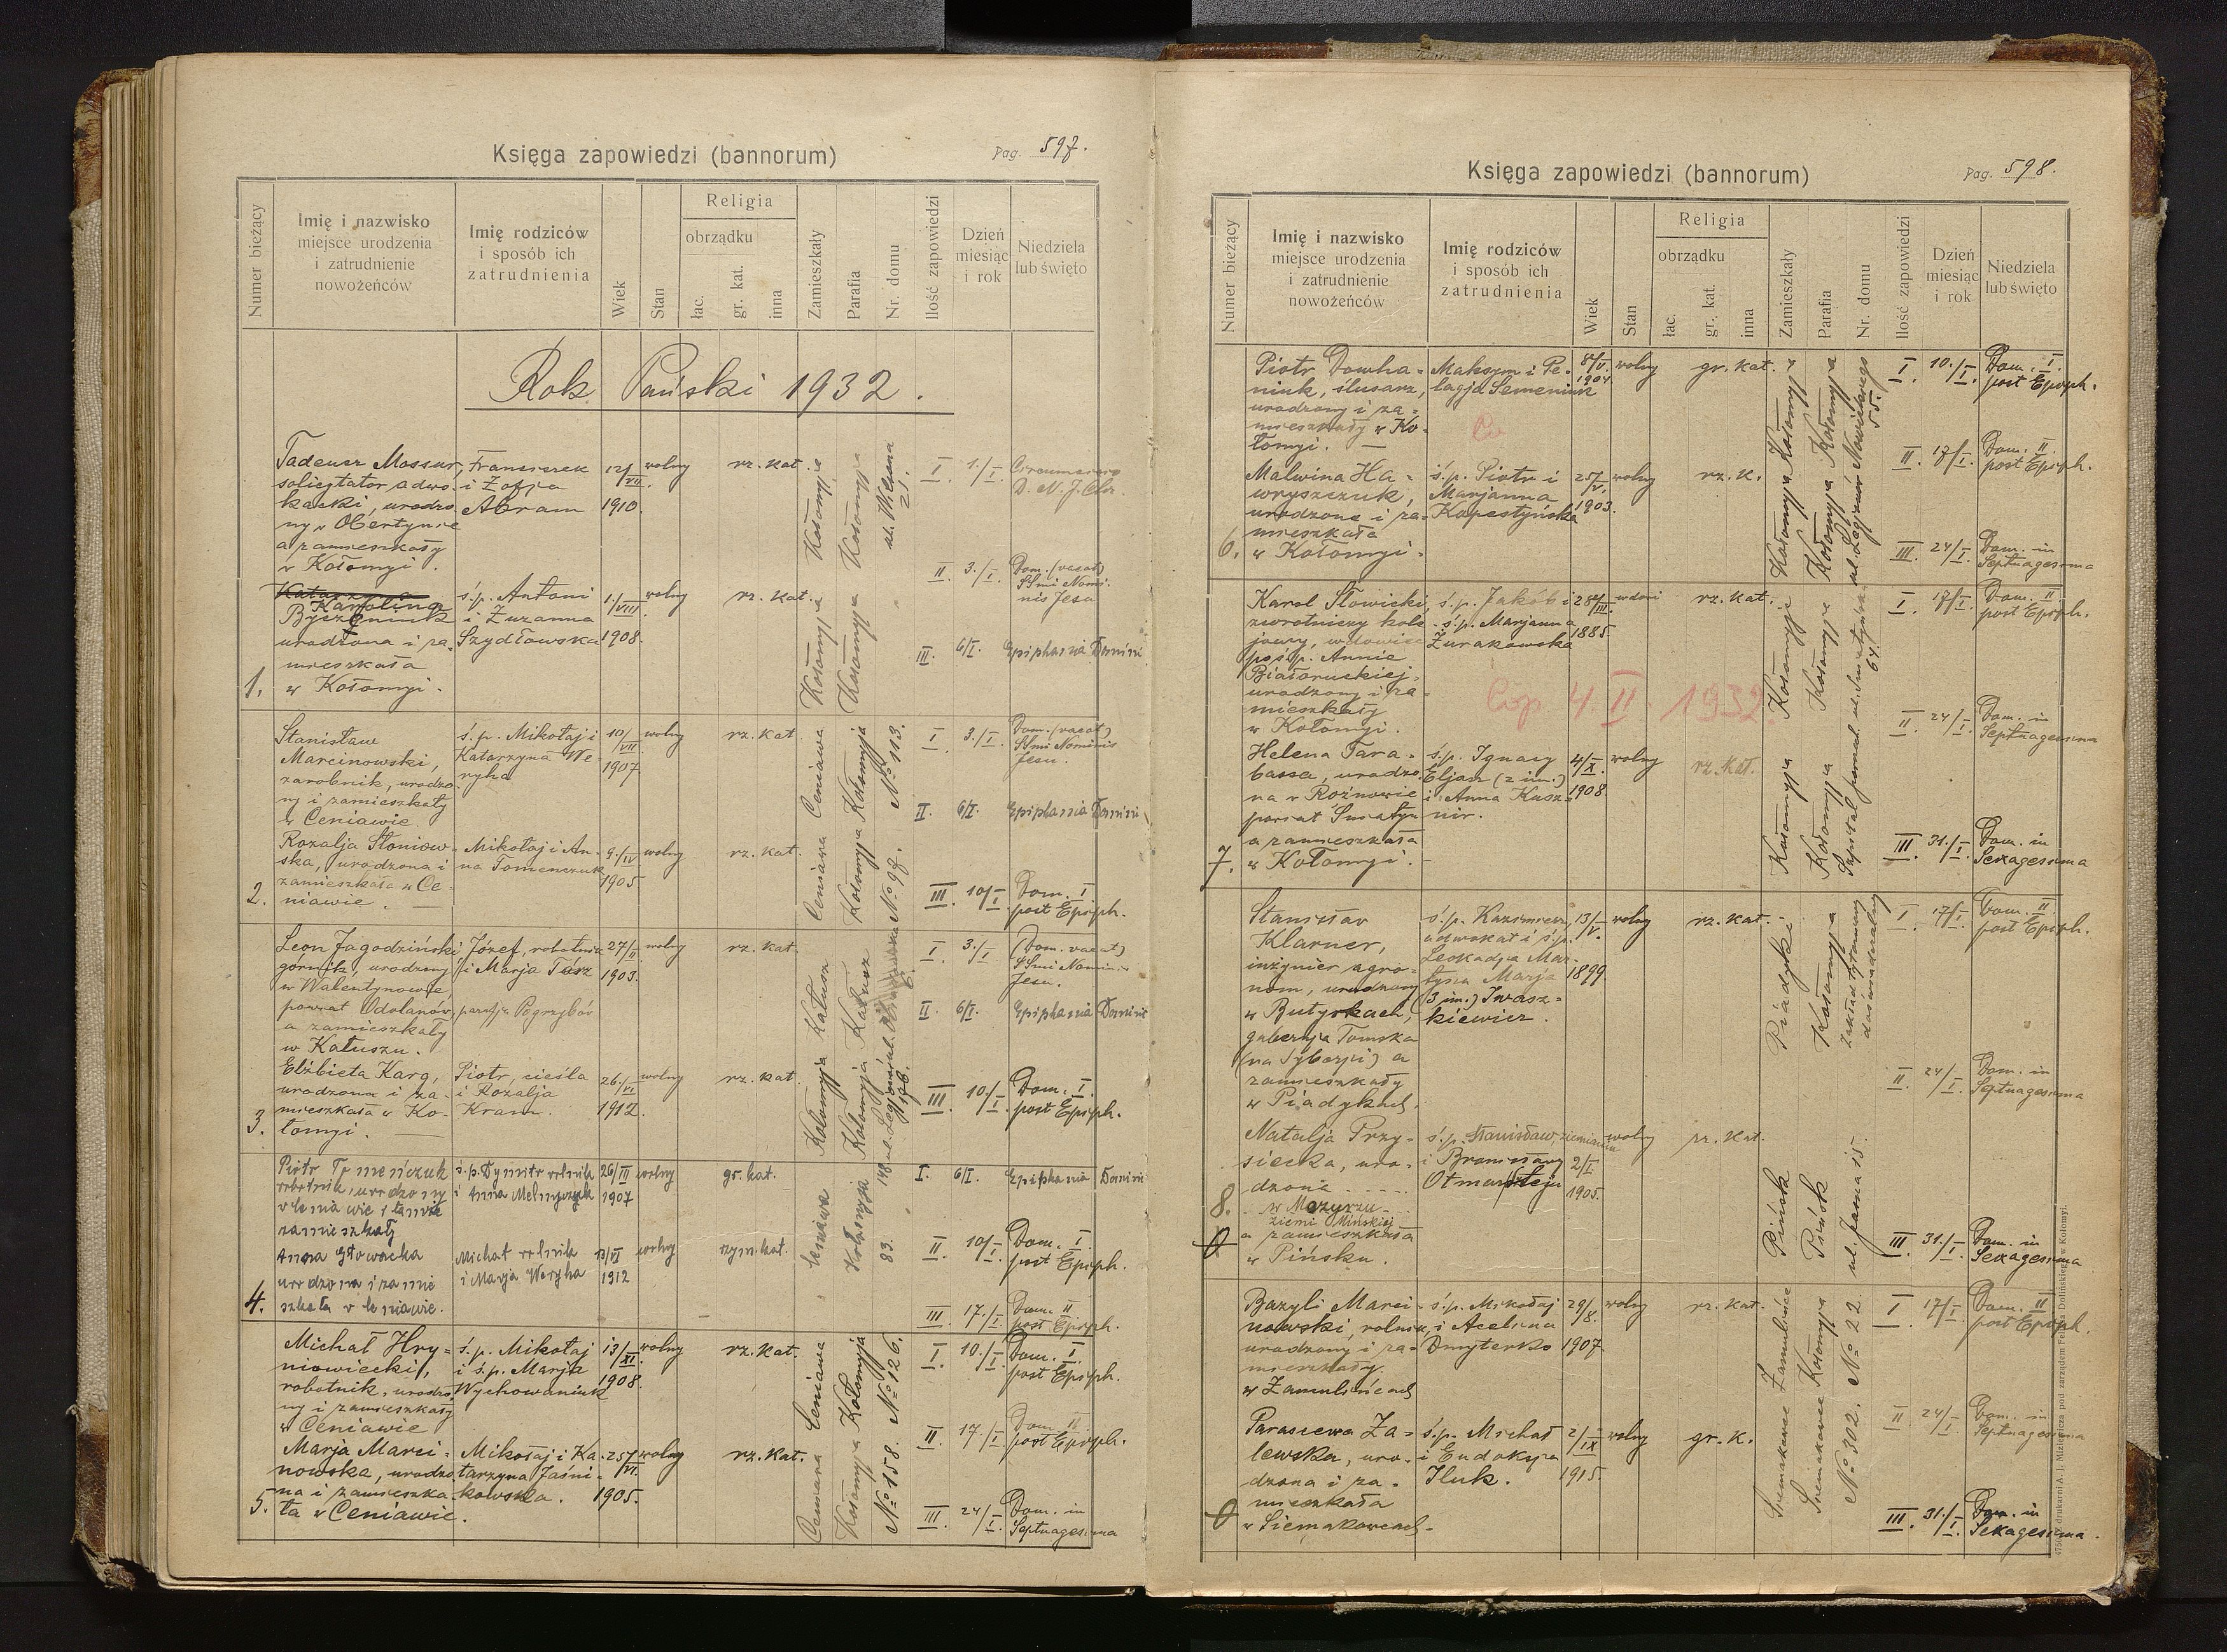 Księga zapowiedzi (bannorum)
Pag. 597.
Numer bieżący
Imię i nazwisko
miejsce urodzenia
i zatrudnienie
nowożeńców
Imię rodziców
i sposób ich
zatrudnienia
Wiek
Stan
Religia
obrządku
łac.
gr. kat.
inna
Zamieszkały
Parafia
Nr. domu
Ilość zapowiedzi
Dzień
miesiąc
i rok
Niedziela
lub święto
Rok Pański 1932.
Tadeusz Mossur,
solicytator adwo-
kacki, urodzo-
ny w Obertynie
a zamieszkały
w Kołomyi.
Franciszek
i Zofja
Abram
12/VII.
1910.
wolny
rz. kat.
Kołomyja
Kołomyja
ul. Wilsona
21.
I 1./I. Circumcisio
D. N. J. Chr.
II. 3./I. Dom. (vacat)
SSmi Nomi-
nis Jesu
III. 6/I. Epiphania Domini
1.
Katarzyna
Karolina
Byczeniuk
urodzona i za-
mieszkała
w Kołomyi.
ś.p. Antoni
i Zuzanna
Szydłowska
1./VIII.
1908.
wolny
rz. kat.
Kołomyja
Kołomyja
2.
Stanisław
Marcinowski,
zarobnik, urodzo-
ny i zamieszkały
w Ceniawie.
ś.p. Mikołaj i
Katarzyna We
ryha
10/VII.
1907
wolny
rz. kat.
Ceniawa
Kołomyja
No 113.
I. 3./I. Dom. (vacat)
SSmi Nominis
Jesu.
II. 6/I. Epiphania Domini
III. 10/I. Dom. I.
post Epiph.
Rozalja Słoniow-
ska, urodzona i
zamieszkała w Ce-
niawie.
Mikołaj i An-
na Tomenczuk
9./IV
1905
wolny
rz. kat.
Ceniawa
Kołomyja
No 98.
3.
Leon Jagodziński,
górnik, urodzony
w Walentynowie
powiat Odolanów,
a zamieszkały
w Kałuszu.
Józef, robotnik
i Marja Tósz
parafja Pogrzybów
27/II
1903.
wolny
rz. kat.
Kałusz
Kałusz
I. 3./I (Dom. vacat)
SSmi Nominis
Jesu.
II. 6/I. Epiphania Domini
III. 10./I. Dom. I.
post Epiph.
Elżbieta Karg,
urodzona i za-
mieszkała w Ko-
łomyi.
Piotr, cieśla
i Rozalja
Kram.
26./VI
1912.
wolny
rz. kat.
Kołomyja
Kołomyja
4.
Piotr Tomeńczuk
robotnik, urodzony
w Ceniawie i tamże
zamieszkały
ś.p. Dymitr rolnik
i Anna Melnyczuk
26/III
1907
wolny
gr. kat.
Ceniawa
Kołomyja
118
I. 6/I. Epiphania Domini
II. 10/I. Dom. I.
post Epiph.
III. 17./I. Dom. II
post Epiph.
Anna Głowacka
urodzona i zamie
szkała w Ceniawie.
Michał rolnik
i Marja Weryha
13/VI
1912
wolny
rzym. kat.
83.
5.
Michał Hry-
niowiecki,
robotnik, urodzo-
ny i zamieszkały
w Ceniawie
ś.p. Mikołaj
i ś.p. Marja
Wychowaniuk
13/XI.
1908.
wolny
rz. kat.
Ceniawa
Kołomyja
No 126.
I. 10./I Dom. I.
post Epiph.
II. 17./I Dom. II
post Epiph.
III. 24/I. Dom. in
Septuagesima
Marja Marci-
nowska, urodzo-
na i zamieszka-
ła w Ceniawie.
Mikołaj i Ka-
tarzyna Jaśni-
kowska.
25/VI.
1905.
wolny
rz. kat.
Ceniawa
Kołomyja
No 158.
Księga zapowiedzi (bannorum)
Pag. 598.
Numer bieżący
Imię i nazwisko
miejsce urodzenia
i zatrudnienie
nowożeńców
Imię rodziców
i sposób ich
zatrudnienia
Wiek
Stan
Religia
obrządku
łac.
gr. kat.
inna
Zamieszkały
Parafia
Nr. domu
Ilość zapowiedzi
Dzień
miesiąc
i rok
Niedziela
lub święto
6.
Piotr Dowha-
niuk, ślusarz,
urodzony i za-
mieszkały w Ko-
łomyi.
Maksym i Pe-
lagja Semeniuk
8/V.
1904.
wolny
gr. kat.
Kołomyja
Kołomyja
55.
I. 10./I. Dom. I.
post Epiph.
II. 17/I. Dom. II.
post Epiph.
III. 24/I. Dom. in
Septuagesima
Malwina Ha-
wryszczuk,
urodzona i za-
mieszkała
w Kołomyi.
ś.p. Piotr i
Marjanna
Kapestyńska
25/V.
1903.
wolny
rz. k.
Kołomyja
Kołomyja
ul. Legjonów
7.
Karol Słowicki,
zwrotniczy kole-
jowy, wdowiec
po ś.p. Annie
Białoruskiej,
urodzony i za-
mieszkały
w Kołomyi.
ś.p. Jakób i
ś.p. Marjanna
Żurakowska
28/III.
1885.
rz. kat.
Kołomyja
Kołomyja
64.
4 II 1932.
I. 17/I. Dom. II
post Epiph.
II. 24/I. Dom. in
Septuagesima
III. 31./I. Dom. in
Sexagesima
Helena Tara-
bassa, urodzo-
na w Rożnowie
powiat Śniatyn
a zamieszkała
w Kołomyi.
ś.p. Ignacy
Eljasz (2 im.)
i Anna Kusz-
nir.
4/X.
1908.
wolny
rz. kat.
Kołomyja
Kołomyja
8.
Stanisław
Klarner,
inżynier agro-
nom, urodzony
w Butyrkach,
gubernja Tomska
(na Syberji) a
zamieszkały
w Piadykach.
ś.p. Kazimierz
adwokat i ś.p.
Leokadja Mar-
tyna Marja
(3 im.) Iwasz-
kiewicz.
13/V.
1899
wolny
rz. kat.
Piadyki
Kołomyja
Zakład tytoniowy
doświadczalny
I. 17/I. Dom. II
post Epiph.
II. 24/I. Dom. in
Septuagesima
III. 31./I. Dom. in
Sexagesima
Natalja Przy-
siecka, uro-
dzona
w Mozyrzu
ziemi Mińskiej
a zamieszkała
w Pińsku.
ś.p. Stanisław ziemianin
i Bronisławy
2/I
1905.
wolny
rz. kat.
Pińsk
Pińsk
ul. Jana 15.
Bazyli Marci-
nowski, rolnik,
urodzony i za-
mieszkały
w Zamulińcach
ś.p. Mikołaj
i Acelina
Dmyterko
29/X.
1907
wolny
rz. kat.
Zamulińce
Kołomyja
No 22.
I 17/I. Dom. II.
post Epiph.
II. 24/I. Dom. in
Septuagesima
III. 31./I. Dom. in
Sexagesima.
Parascewa Za-
lewska, uro-
dzona i za-
mieszkała
w Siemakowcach.
ś.p. Michał
i Eudokja
Iluk.
2/IX
1915.
wolny
gr. k.
Siemakowce
Siemakowce
No 302.